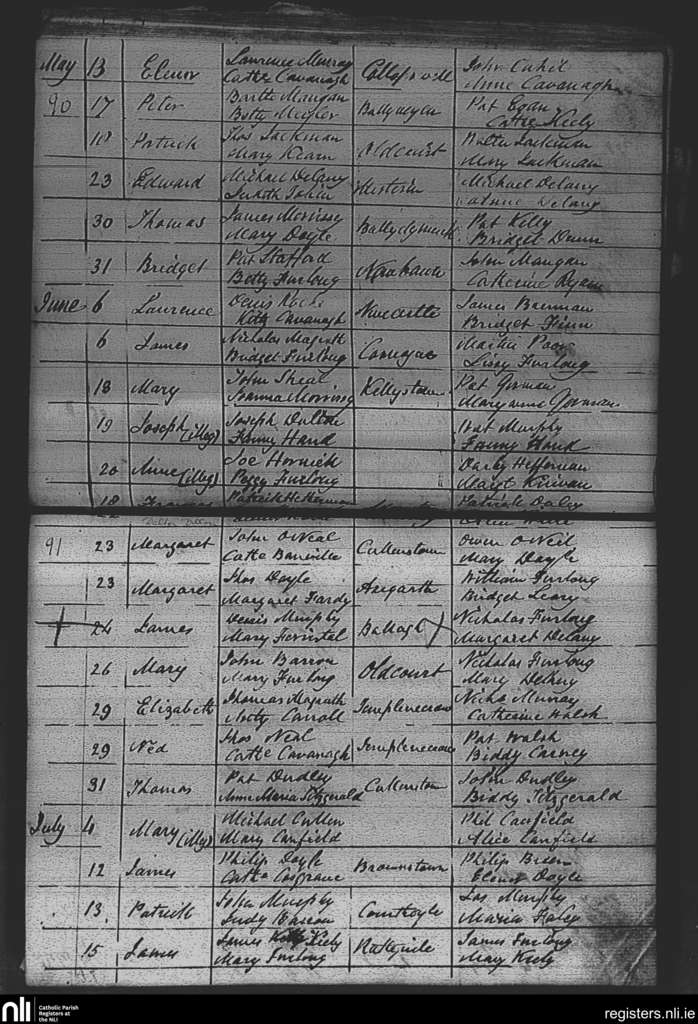 May 13 Elenor Lawrence Murray John Cahil
Cathe Cavanagh Anne Cavanagh
90 17 Peter Bartle Mangan Pat Egan
Betty Cathe Kiely
18 Patrick Thos Lackman Oldcourt Walter Lackman
Mary Kearn Mary Lackman
23 Edward Michael Delany Michael Delany
Judith Tobin Delany
30 Thomas James Morrissy Pat Kelly
Mary Doyle Bridget Dunn
31 Bridget Pat Stafford John Mangan
Betty Furlong Catherine Ryan
June 6 Laurence Denis Newcastle James Brennan
Kitty Cavanagh Bridget Finn
6 James Nicholas Magrath Poor
Bridget Furlong Lissy Furlong
18 Mary John Sheal Kellystown Pat Gorman
Joanna Morrissy Maryanne Gorman
19 Joseph (illeg) Joseph Dalton Pat Murphy
Fanny Hand Fanny Hand
20 Anne (illeg) Joe Hornick Darby Heffernan
Peggy Furlong Margt Kirwan
18 Frances Patrick Patrick Daley
22
91 23 Margaret John ONeal Cullenstown Owen ONeil
Cathe Banville Mary Doyle
23 Margaret Thos Doyle William Furlong
Margaret Fardy Bridget Leary
24 James Denis Murphy Ballagh Nicholas Furlong
Mary Margaret Delany
26 Mary John Barron Oldcourt Nicholas Furlong
Mary Furlong Mary Delany
29 Elizabeth Thomas Magrath Templenecrow Nichs Murray
Carroll Catherine Walsh
29 Ned Thos Neal Templenecrow Pat Walsh
Cathe Cavanagh Biddy Carney
31 Thomas Pat Dudley Cullenstown John Dudley
Anne Maria Fitzgerald Biddy Fitzgerald
July 4 Mary (illeg) Michael Cullen Phil Canfield
Mary Canfield Alice Canfield
12 James Philip Doyle Brownstown Philip Breen
Cathe Cosgrave Elenor Doyle
13 Patrick John Murphy Courthoyle Jas Murphy
Judy Barron Maria Foley
15 James James Kiely James Furlong
Mary Furlong Mary Kiely
nli Catholic Parish
Registers at
the NLI
registers.nli.ie